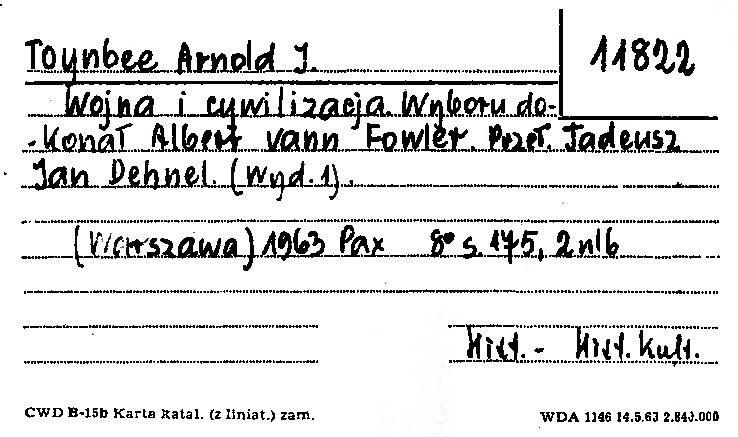 Toynbee Arnold J.
11822
Wojna i cywilizacja. Wyboru do-
-konał Albert vann Fowler. Przeł. Tadeusz
Jan Dehnel. (Wyd. 1).
(Warszawa) 1963 Pax 8° s. 175, 2 nlb
Hist. - Hist. kult.
CWD B-15b Karta katal. (z liniat.) zam.
WDA 1146 14.5.63 2.840.000